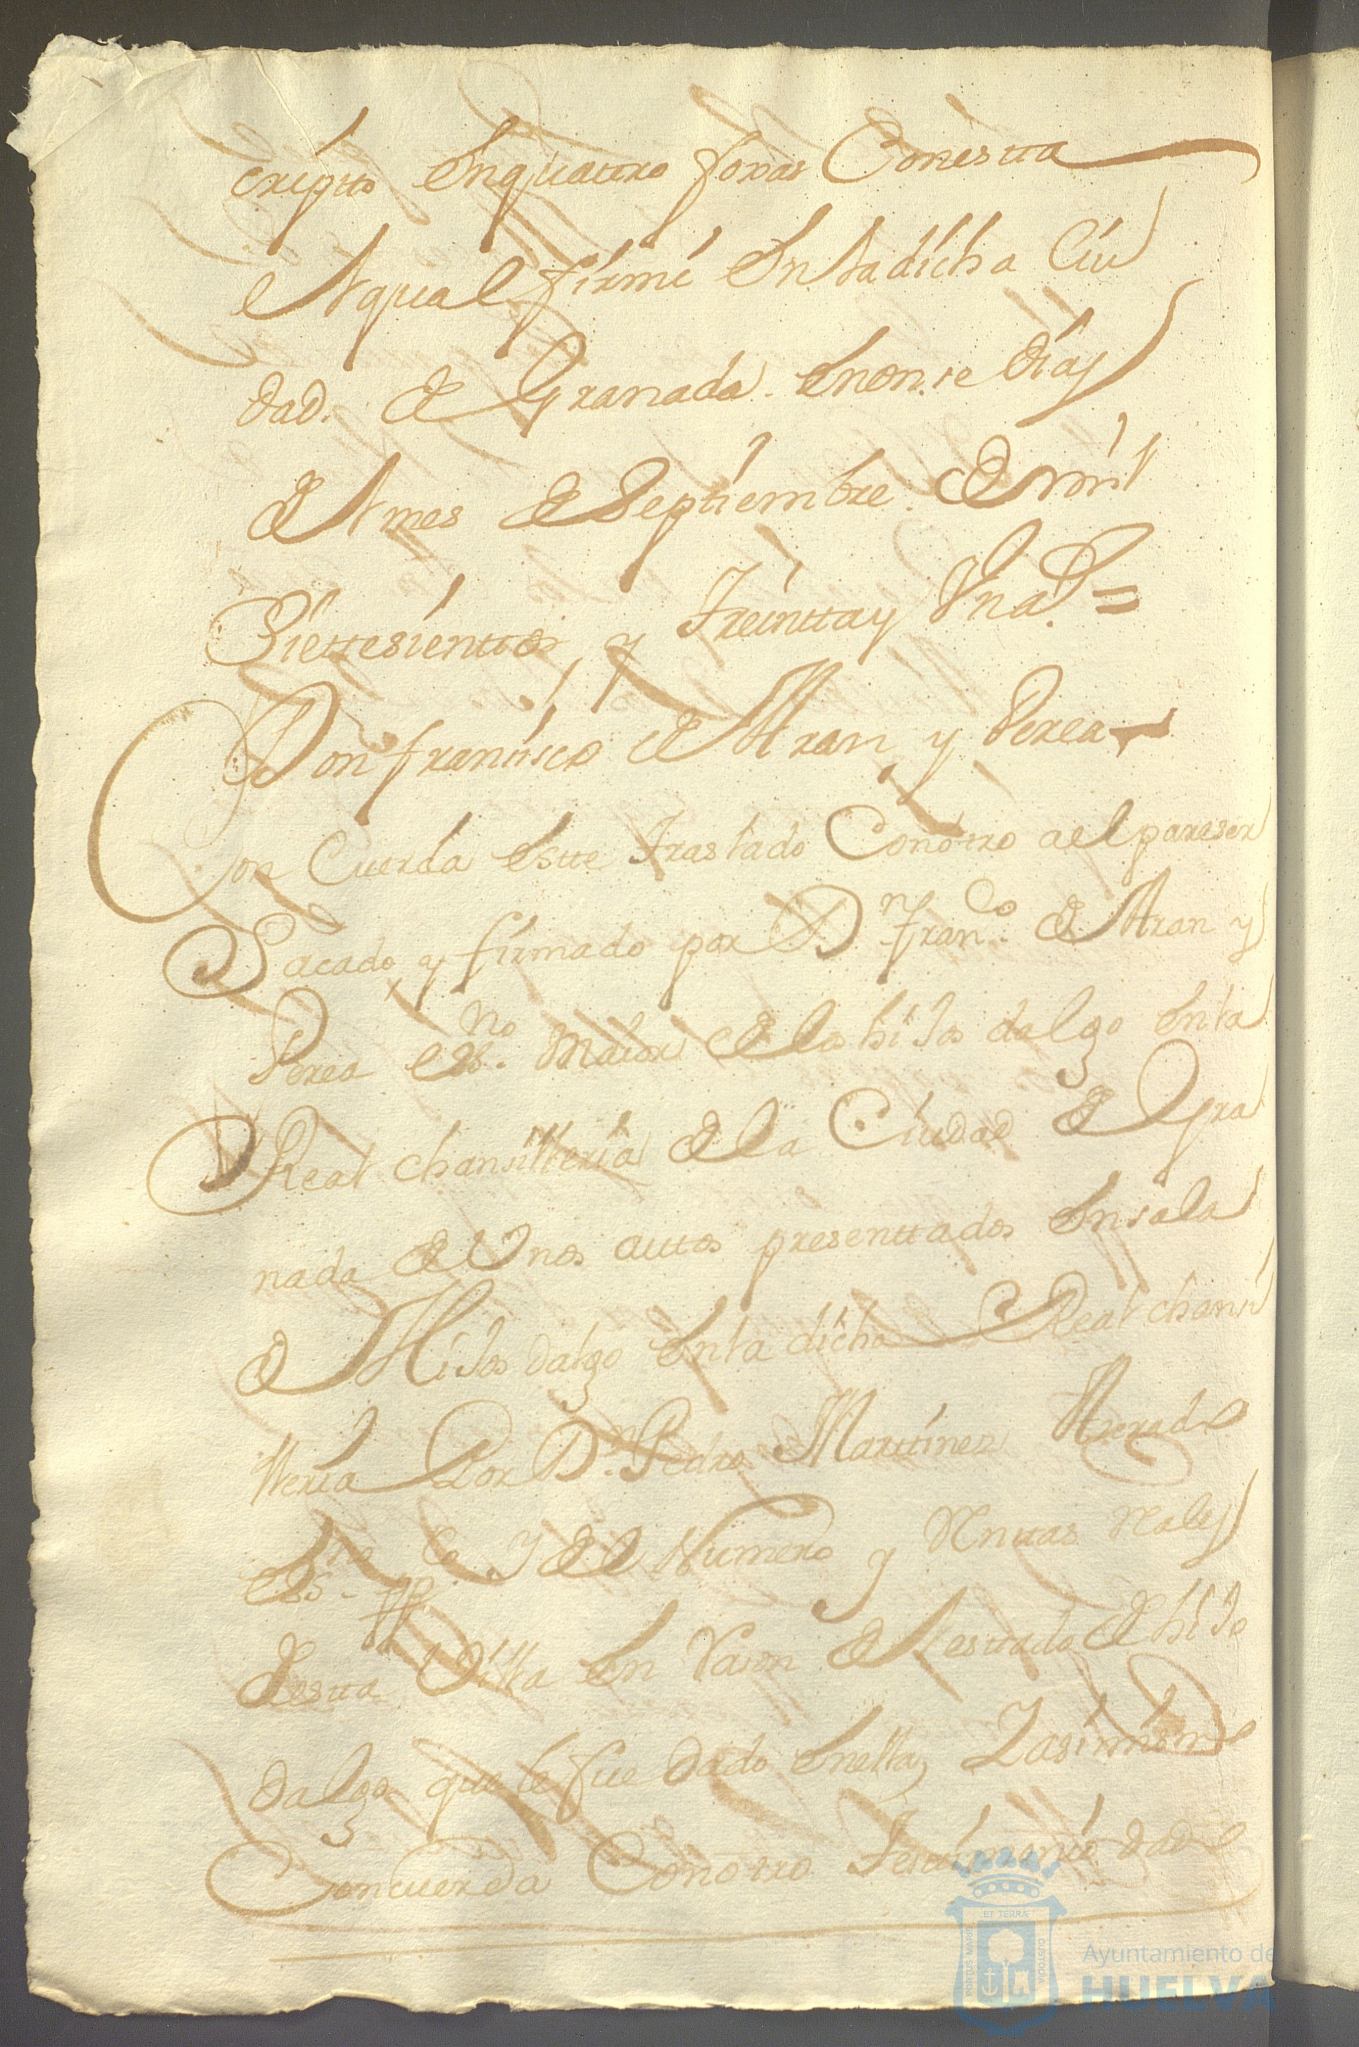 cripto en quattro foxas Con estta
el qual firmé en la dicha Ciu
dad. de Granada. en onse dias
del mes de Septiembre. de mil
Siettesienttos y Treintta y Un a.s =
Don fransisco de Aran y Perea
Con Cuerda estte traslado Con otro a el pareser
Sacado y firmado por D.n Fran.co de Aran y
Perea es.no Maior de los hijos dalgo en la
Real chansilleria de la Ciudad de Gra
nada de Unos auttos presenttados en sala
de Hijos dalgo en la dicha Real chansi
lleria Por D.n Pedro Marttinez
es.no pp.co y del Numero y Renttas Rales
destta Villa en Rason del esttado de hijo
dalgo que le fue dado en ella, Y asimismo
Concuerda Con otro Testimonio dado
PORTUS MARIS ET TERRAE CUSTODIA
Ayuntamiento de
HUELVA